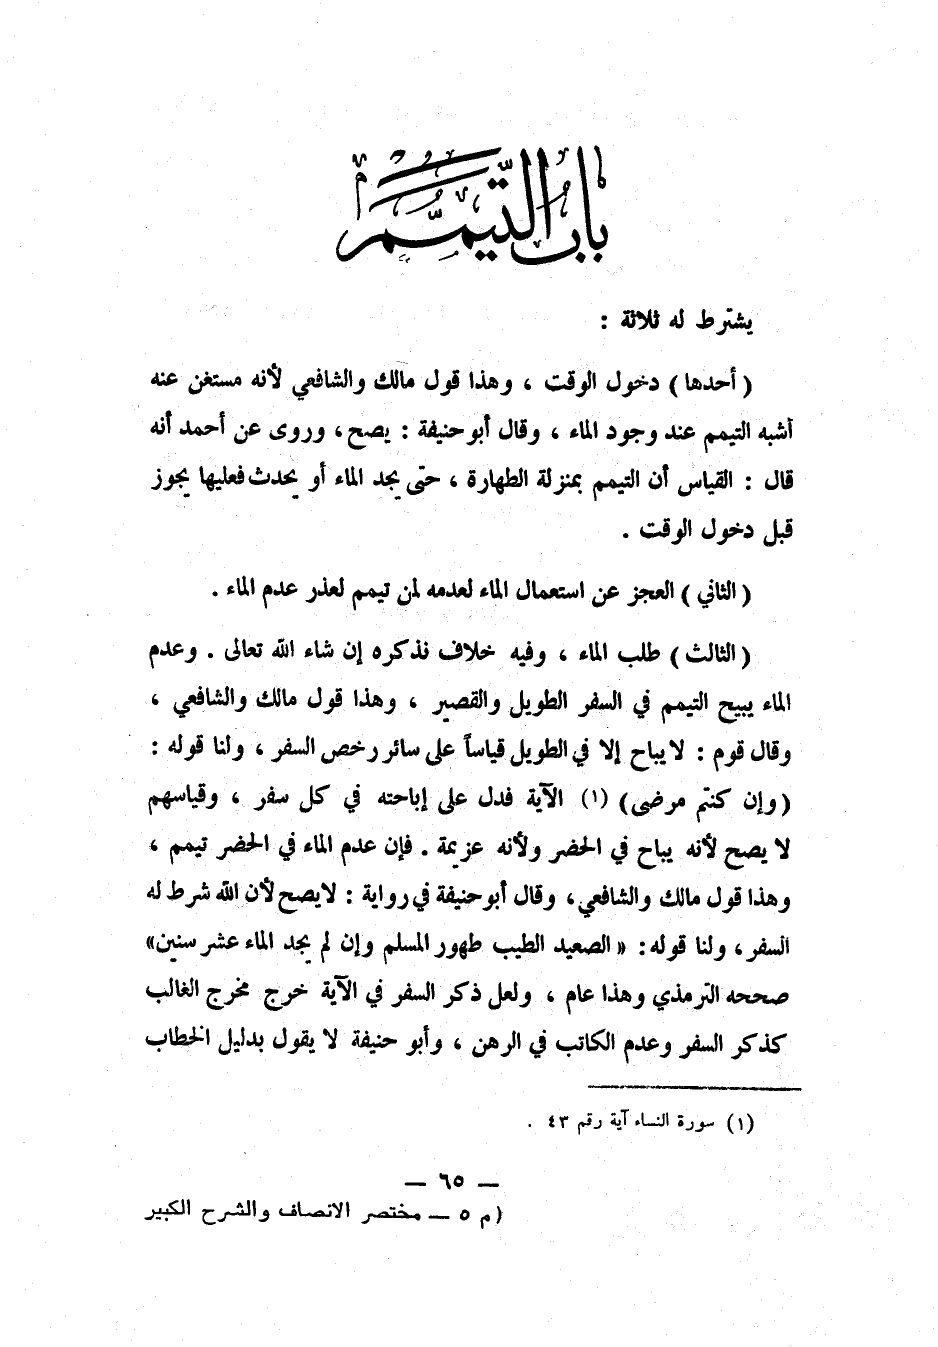 باب التيمم
يشترط له ثلاثة :
( أحدها ) دخول الوقت ، وهذا قول مالك والشافعي لأنه مستغن عنه
أشبه التيمم عند وجود الماء ، وقال أبو حنيفة : يصح ، وروى عن أحمد أنه
قال : القياس أن التيمم بمنزلة الطهارة ، حتى يجد الماء أو يحدث فعليها يجوز
قبل دخول الوقت .
( الثاني ) العجز عن استعمال الماء لعدمه لمن تيمم لعذر عدم الماء .
( الثالث ) طلب الماء ، وفيه خلاف نذكره إن شاء الله تعالى . وعدم
الماء يبيح التيمم في السفر الطويل والقصير ، وهذا قول مالك والشافعي ،
وقال قوم : لا يباح إلا في الطويل قياساً على سائر رخص السفر ، ولنا قوله :
( وإن كنتم مرضى ) (١) الآية فدل على إباحته في كل سفر ، وقياسهم
لا يصح لأنه يباح في الحضر ولأنه عزيمة . فإن عدم الماء في الحضر تيمم ،
وهذا قول مالك والشافعي ، وقال أبو حنيفة في رواية : لا يصح لأن الله شرط له
السفر ، ولنا قوله : « الصعيد الطيب طهور المسلم وإن لم يجد الماء عشر سنين »
صححه الترمذي وهذا عام ، ولعل ذكر السفر في الآية خرج مخرج الغالب
كذكر السفر وعدم الكاتب في الرهن ، وأبو حنيفة لا يقول بدليل الخطاب
(١) سورة النساء آية رقم ٤٣ .
— ٦٥ —
(م ٥ — مختصر الانصاف والشرح الكبير